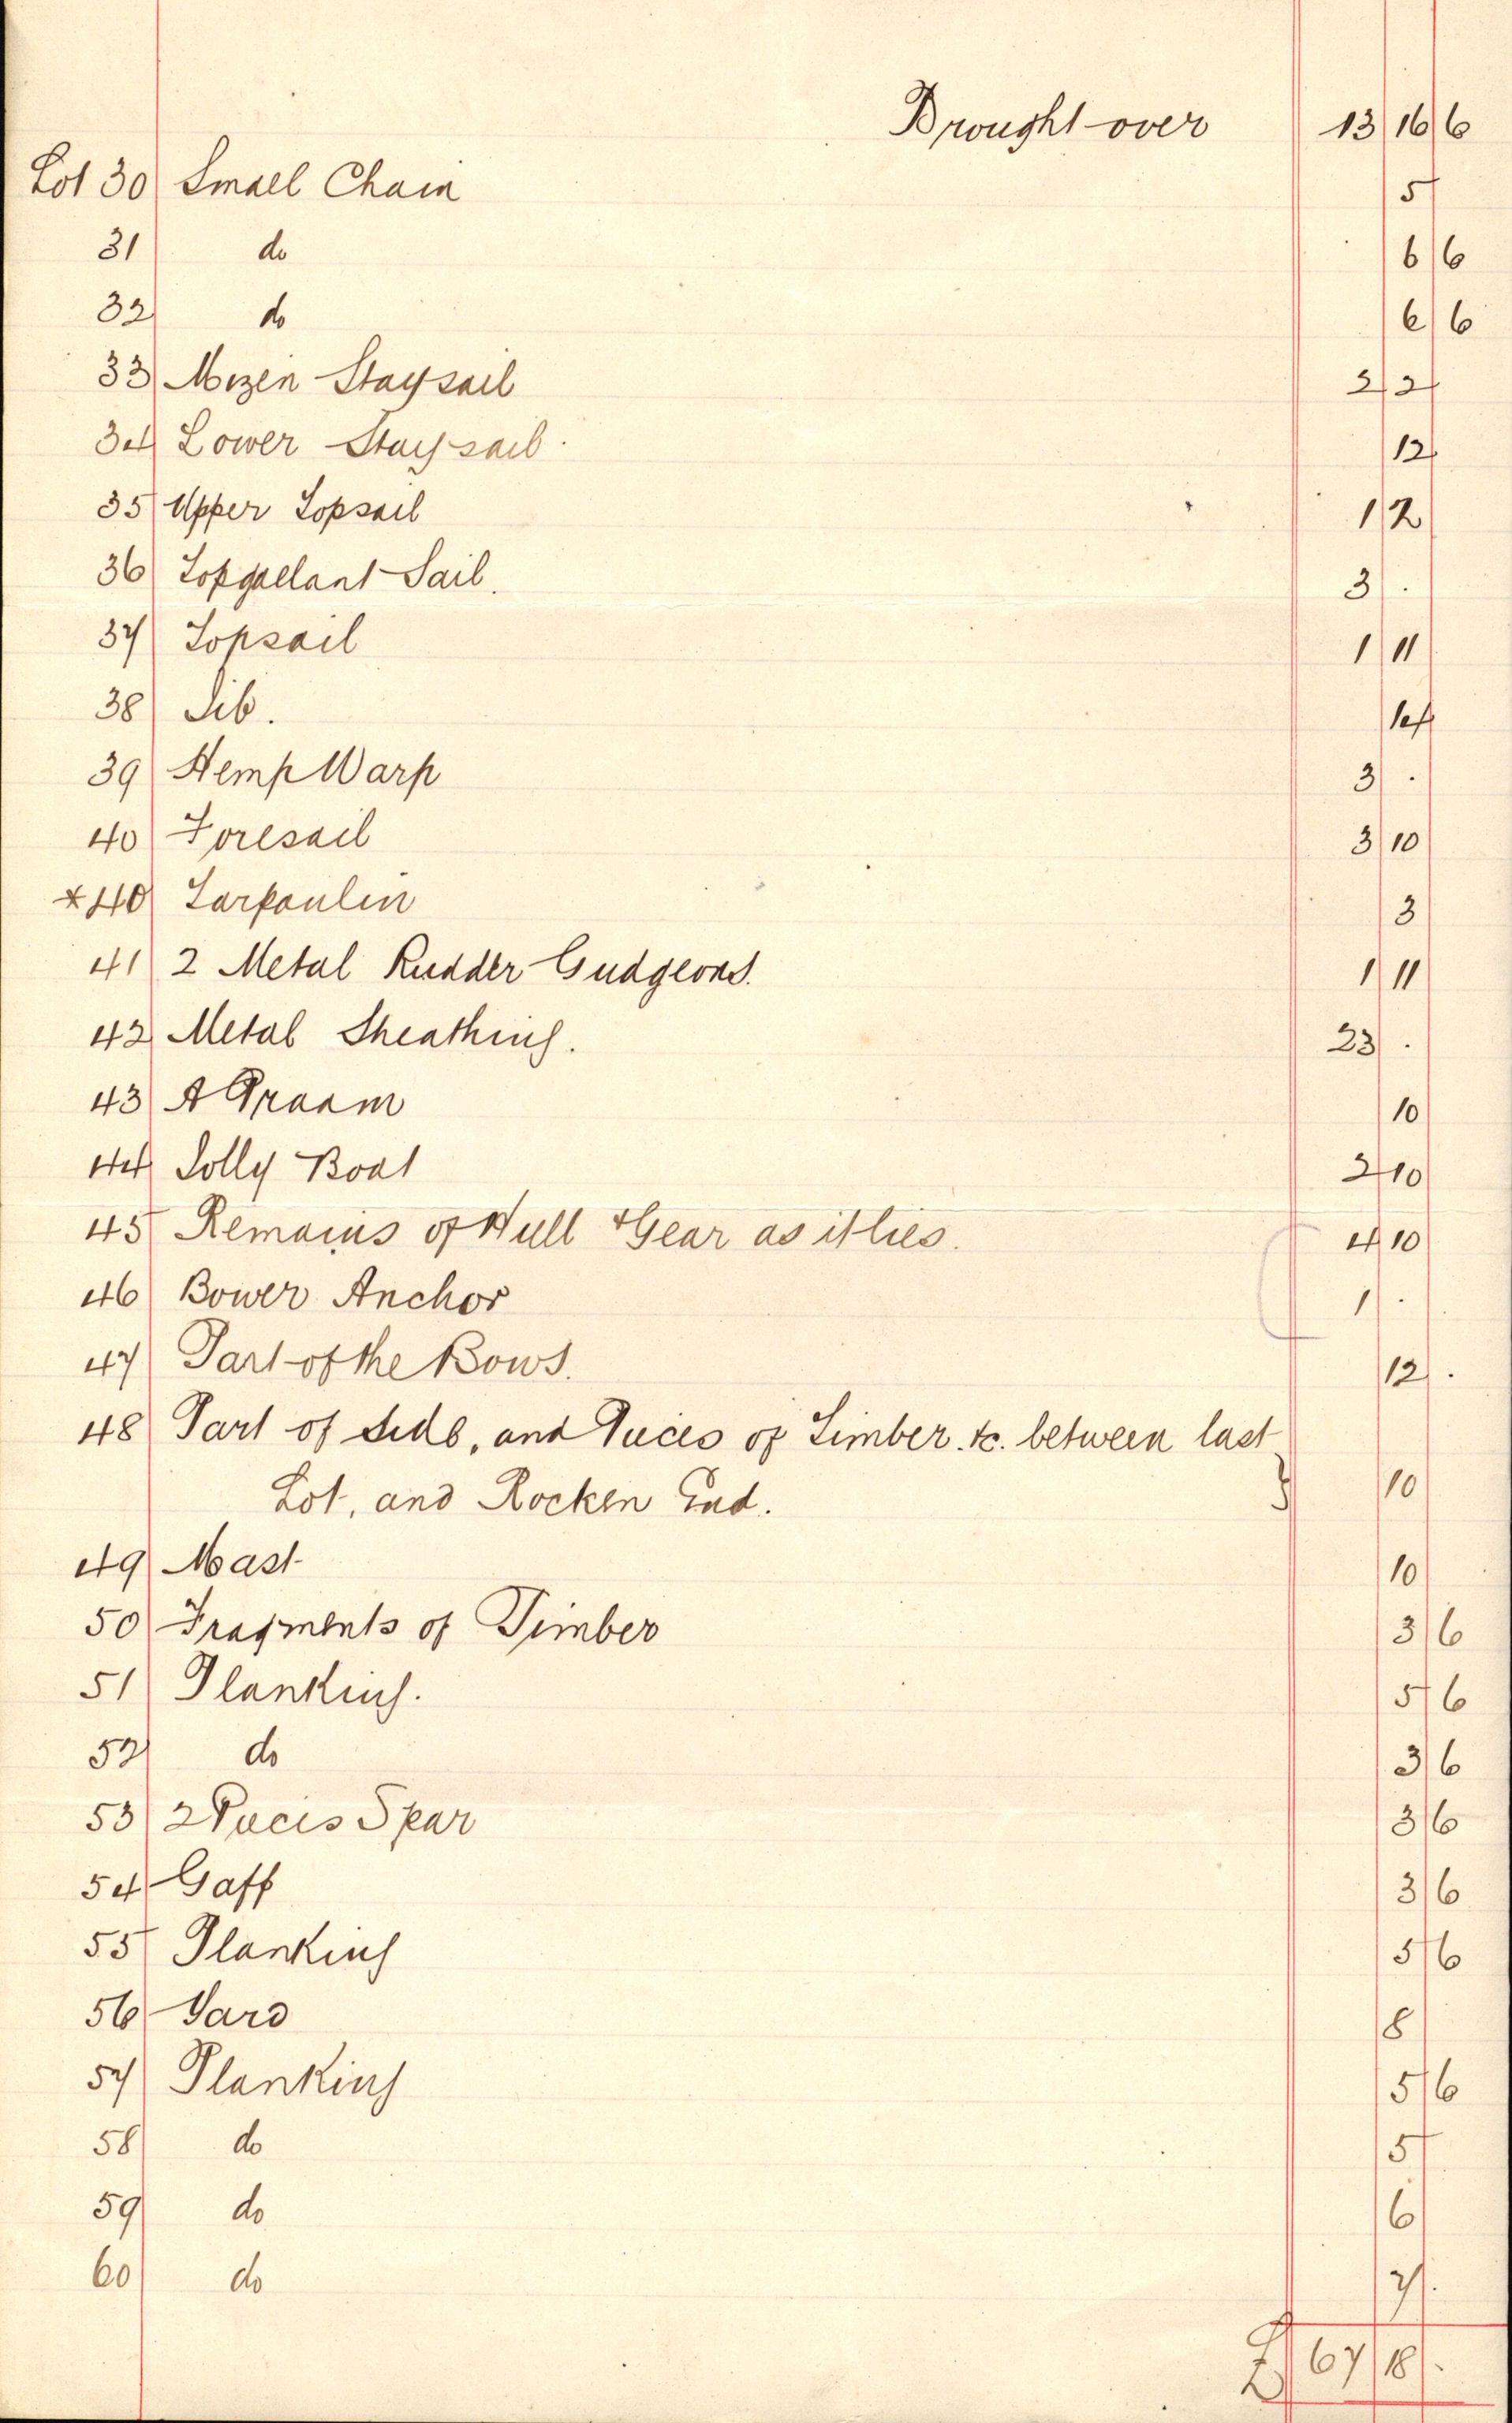 Brought over 13 16 6
Lot 30 Small Chain 5
31 do 6 6
32 do 6 6
33 Mizen Staysail 2 2
34 Lower Staysail 12
35 Upper Topsail 1 2
36 Topgallant Sail. 3 .
37 Topsail 1 11
38 Jib. 14
39 Hemp Warp 3 .
40 Foresail 3 10
x 40 Tarpaulin 3
41 2 Metal Rudder Gudgeons. 1 11
42 Metal Sheathing. 23 .
43 A Praam 10
44 Jolly Boat 2 10
45 Remains of Hull & Gear as it lies. 4 10
46 Bower Anchor 1 .
47 Part of the Bows. 12 .
48 Part of Side, and Pieces of Timber. &c. between last
Lot, and Rocken End. 10
49 Mast 10
50 Fragments of Timber 3 6
51 Planking. 5 6
52 do 3 6
53 2 Pieces Spar 3 6
54 Gaff 3 6
55 Planking 5 6
56 Yard 8
57 Planking 5 6
58 do 5
59 do 6
60 do 7 .
£ 67 18 .